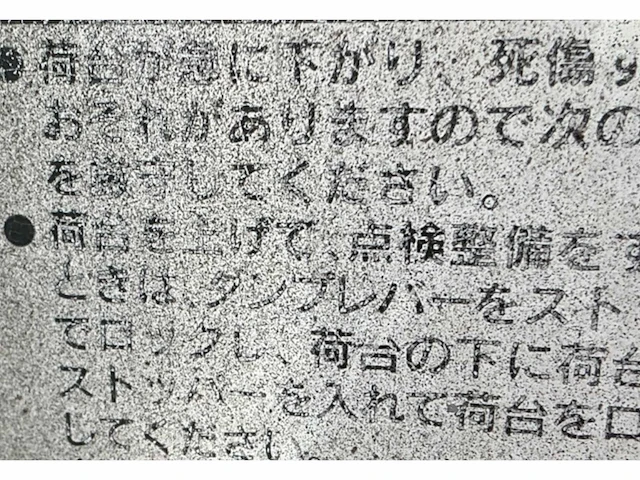 ●荷台が急に下がり、死傷す
おそれがありますので次の
を厳守してください。
●荷台を上げて、点検整備をす
ときは、ダンプレバーをスト
でロックし、荷台の下に荷台
ストッパーを入れて荷台をロ
してください。